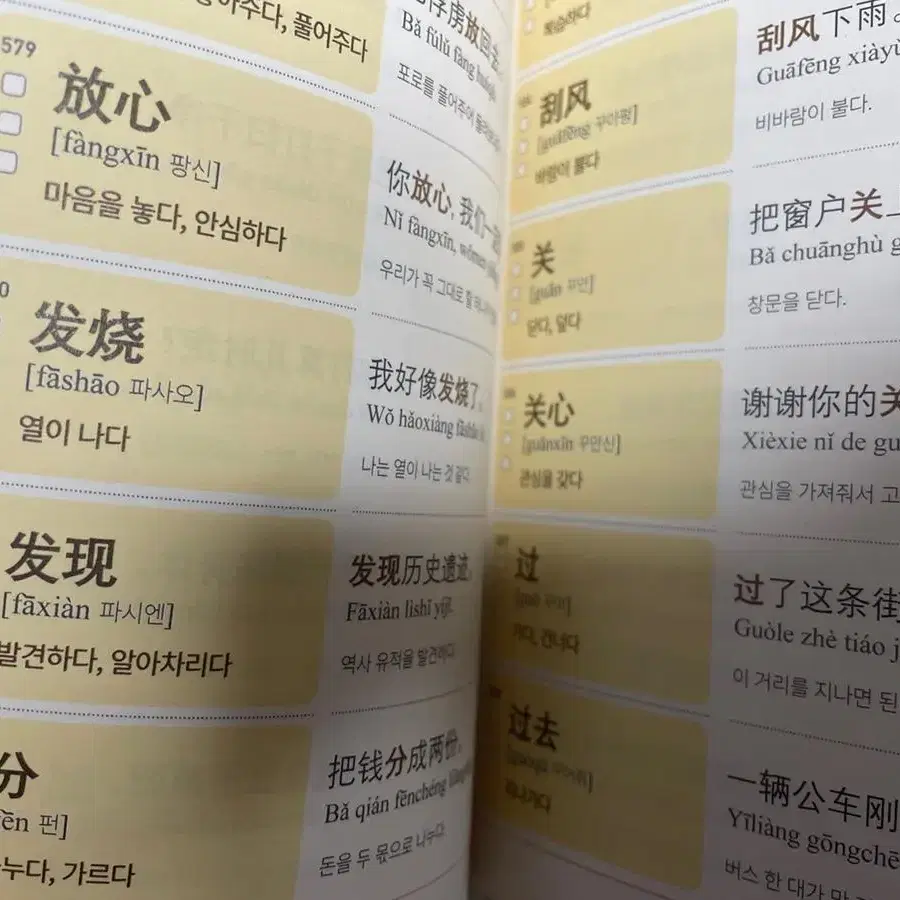 풀어주다
放回去
Bǎ fúlǔ fàng
포로를 풀어주어
579
放心
[fàngxīn 팡신]
마음을 놓다, 안심하다
你放心, 我们一
Nǐ fàngxīn, wǒmen
우리가 꼭 그대로 할
0
发烧
[fāshāo 파사오]
열이 나다
我好像发烧了。
Wǒ hǎoxiàng fāshāo
나는 열이 나는 것 같다.
发现
[fāxiàn 파시엔]
발견하다, 알아차리다
发现历史遗迹。
Fāxiàn lìshǐ yíjì.
역사 유적을 발견하다.
分
fēn 펀]
누다, 가르다
把钱分成两份。
Bǎ qián fēnchéng
돈을 두 몫으로 나누다.
복습하다
刮风
[guāfēng 꾸아펑]
바람이 불다
刮风下雨。
Guāfēng xiàyǔ
비바람이 불다.
关
[guān 꾸안]
닫다, 덮다
把窗户关
Bǎ chuānghù g
창문을 닫다.
关心
[guānxīn 꾸안신]
관심을 갖다
谢谢你的关
Xièxie nǐ de gu
관심을 가져줘서 고
过
[guò 꾸어]
가다, 건너다
过了这条街
Guòle zhè tiáo j
이 거리를 지나면 된
过去
지나가다
一辆公车刚
Yīliàng gōngchē
버스 한 대가 막